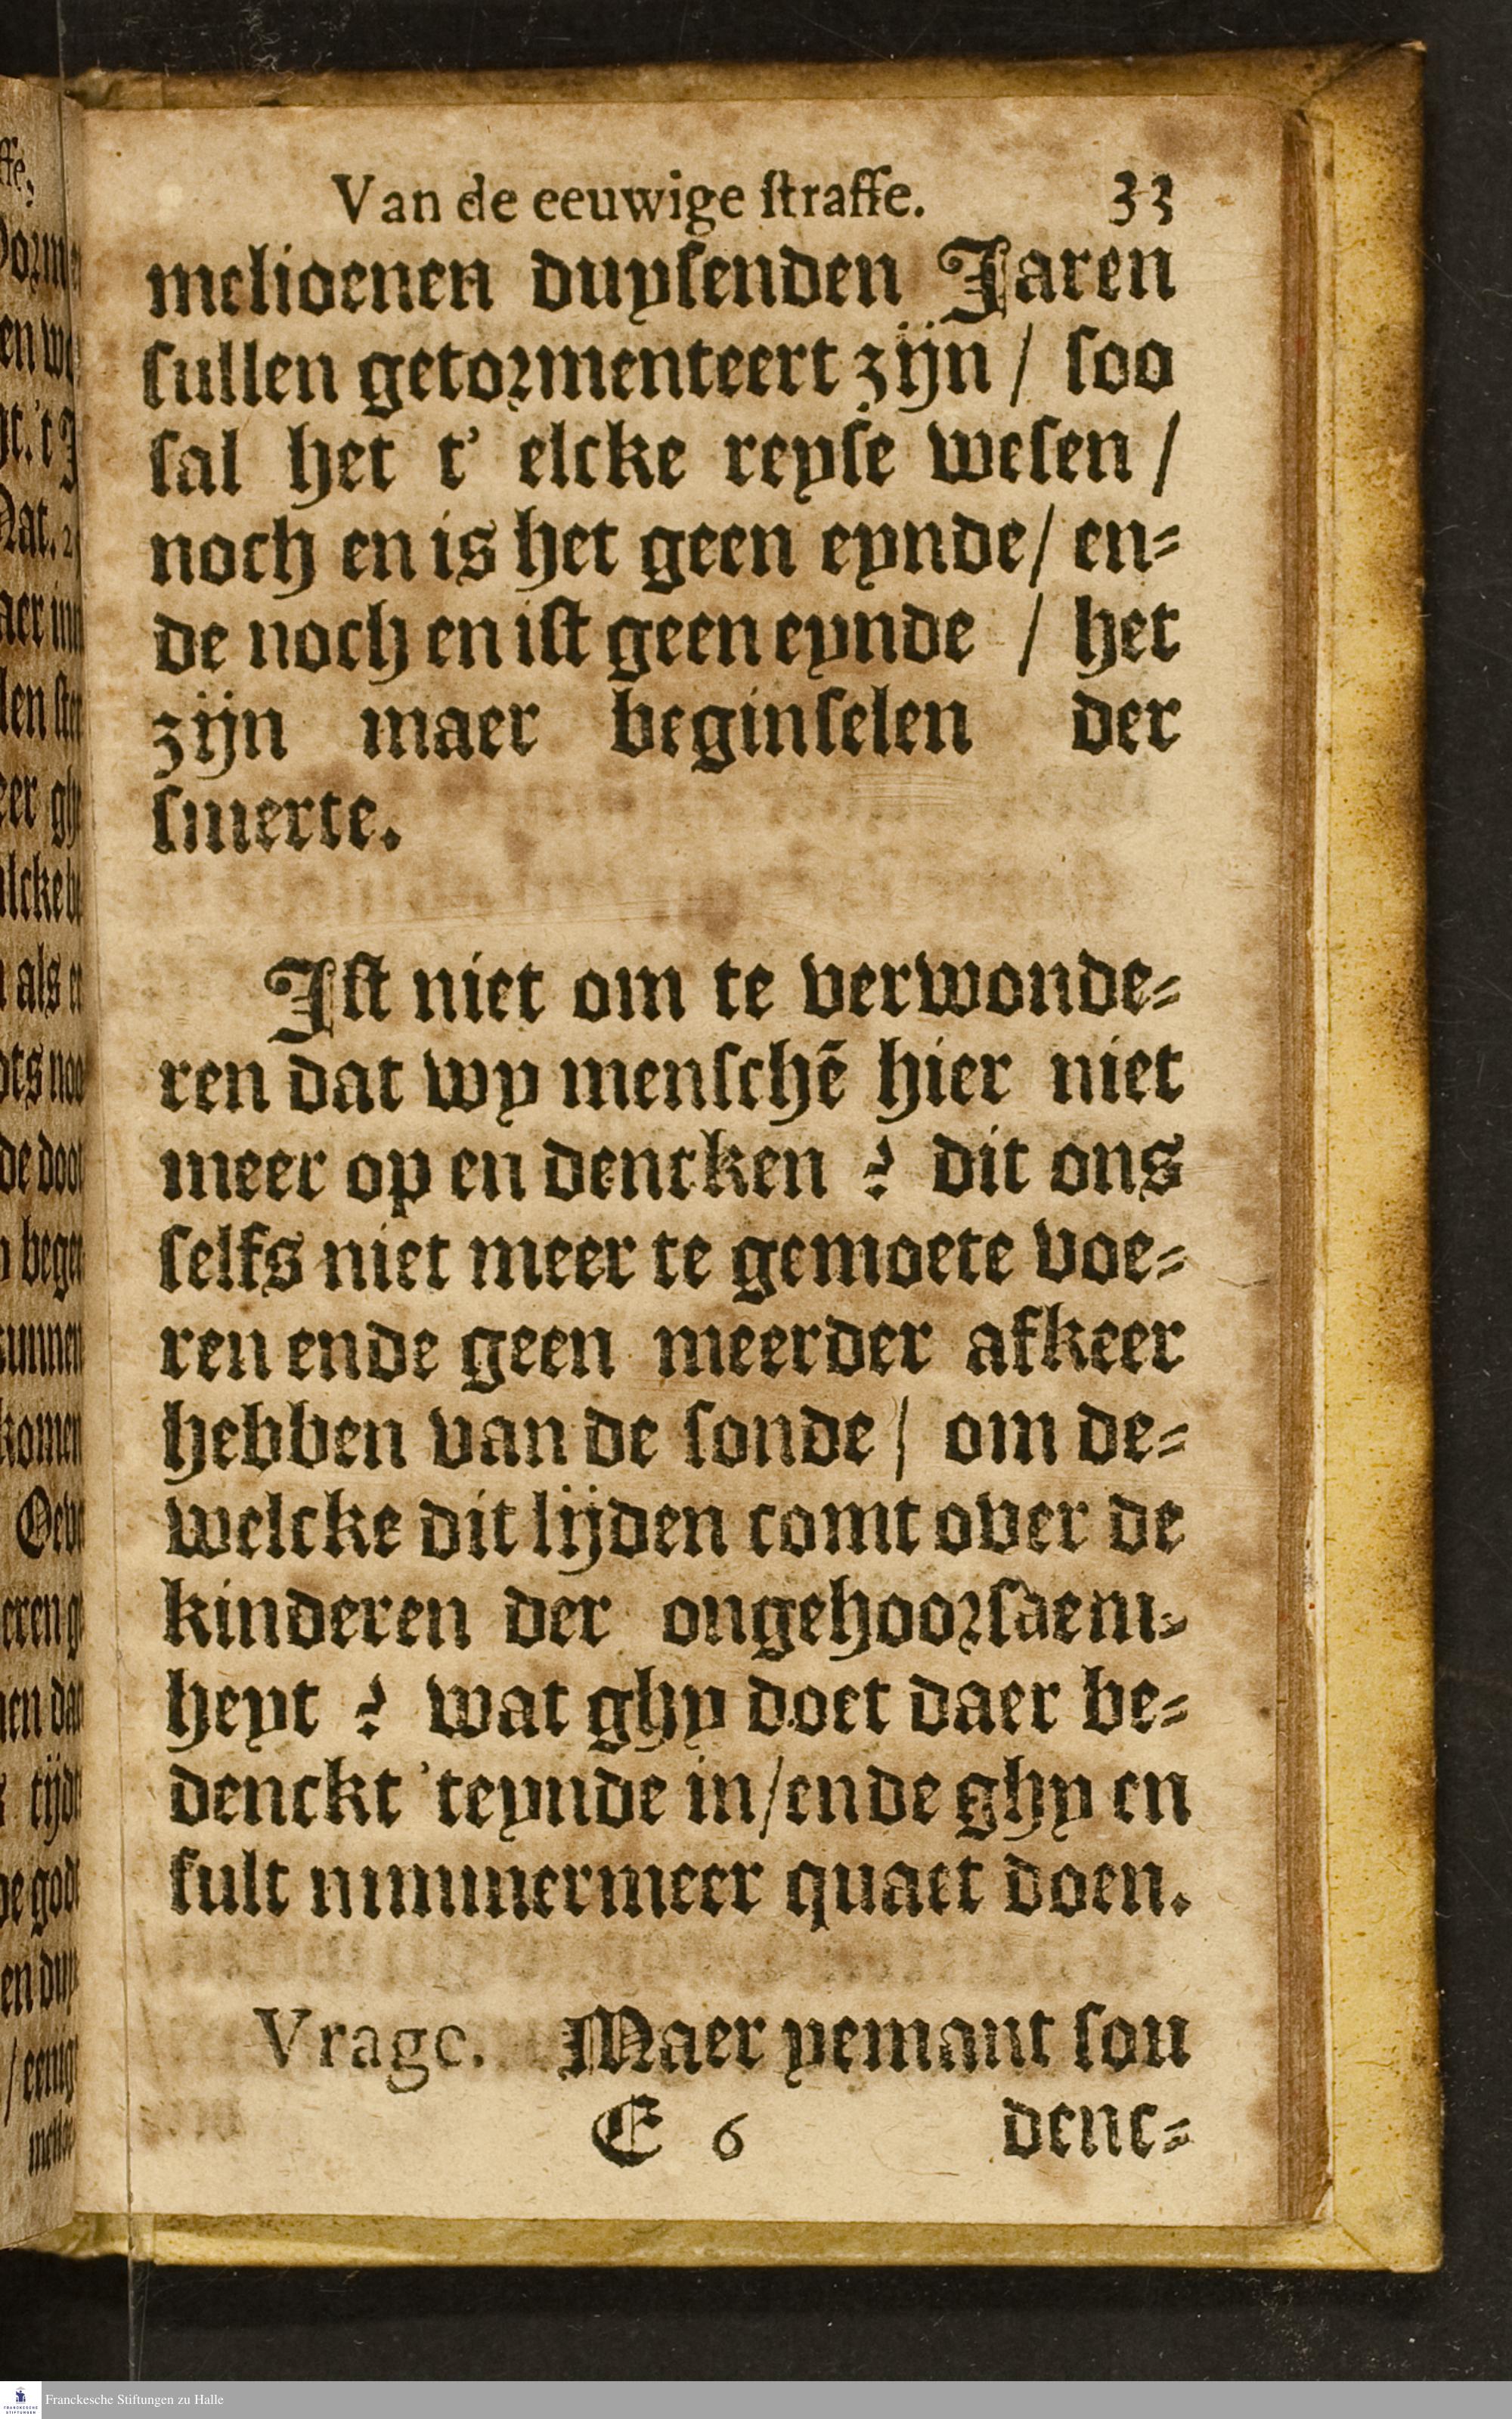 Van de eeuwige ſtraffe. 33
melioenen duyſenden Jaren
ſullen getormenteert zijn / ſoo
ſal het t' elcke reyſe weſen /
noch en is het geen eynde / en-
de noch en iſt geen eynde / het
zijn maer beginſelen der
ſmerte.
Iſt niet om te verwonde-
ren dat wy menſchē hier niet
meer op en dencken ? dit ons
ſelfs niet meer te gemoete voe-
ren ende geen meerder afkeer
hebben van de ſonde / om de-
welcke dit lijden comt over de
kinderen der ongehoorſaem-
heyt ? wat ghy doet daer be-
denckt 'teynde in / ende ghy en
ſult nimmermeer quaet doen.
Vrage. Maer yemant ſou
E 6 denc-
Franckesche Stiftungen zu Halle